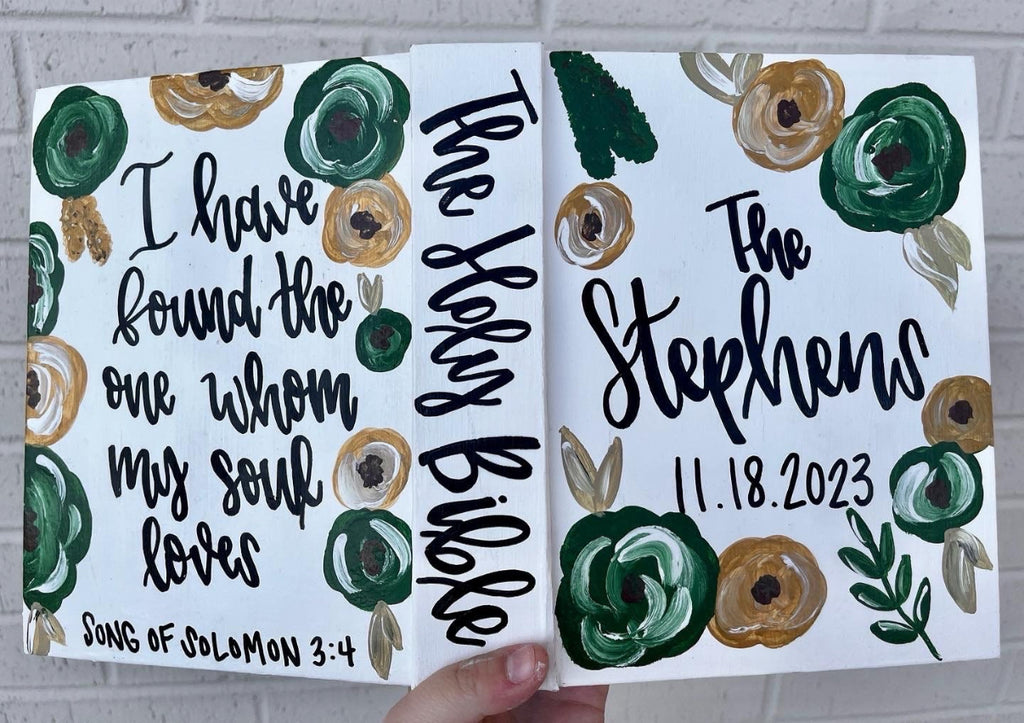 I have
found the
one whom
my soul
loves
SONG OF SOLOMON 3:4
The Holy Bible
The
Stephens
11.18.2023